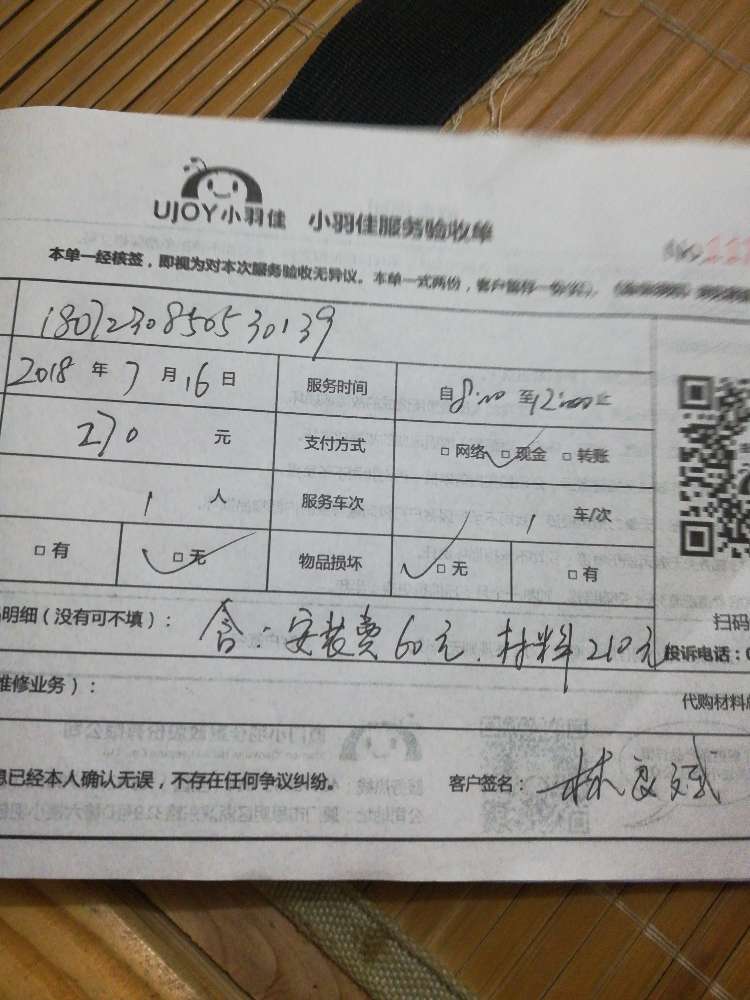 UJOY小羽佳 小羽佳服务验收单
本单一经核签，即视为对本次服务验收无异议。本单一式两份，客户留存一份
1807230850530139
2018 年 7 月 16 日 服务时间 自 8:00 至 12:00 止
270 元 支付方式 □ 网络 □ 现金 □ 转账
1 人 服务车次 1 车/次
□ 有 □ 无 物品损坏 □ 无 □ 有
扫码
明细（没有可不填）： 含：安装费60元、材料210元 投诉电话：0
维修业务）： 代购材料
息已经本人确认无误，不存在任何争议纠纷。 客户签名：